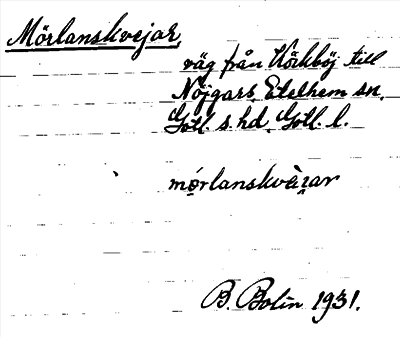 Mörlanskvejar
väg från Kåkböj till
Nöjgars, Etelhem sn.
Gotl. s. hd. Gotl. l.
mörlanskvä̀ɪar
B. Bolin 1931.